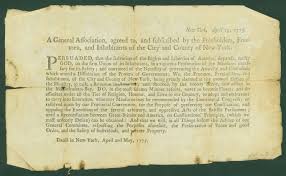 New-York, April 29, 1775.
A General Association, agreed to, and subscribed by the Freeholders, Free-
men, and Inhabitants of the City and County of New-York.
PERSUADED, that the Salvation of the Rights and Liberties of America, depends, under
GOD, on the firm Union of its Inhabitants, in a vigorous Prosecution of the Measures neces-
sary for its Safety; and convinced of the Necessity of preventing the Anarchy and Confusion,
which attend a Dissolution of the Powers of Government; We, the Freemen, Freeholders, and
Inhabitants, of the City and County of New-York, being greatly alarmed at the avowed Design of
the Ministry, to raise a Revenue in America; and, shocked by the bloody Scene, now acting in the
Massachusetts-Bay, DO, in the most solemn Manner, resolve, never to become Slaves; and do
associate under all the Ties of Religion, Honour, and Love to our Country, to adopt and endeavour
to carry into Execution, whatever Measures may be recommended by the Continental Congress; or
resolved upon by our Provincial Convention, for the Purpose of preserving our Constitution, and
opposing the Execution of the several arbitrary, and oppressive Acts of the British Parliament;
until a Reconciliation between Great-Britain and America, on Constitutional Principles, (which we
most ardently Desire) can be obtained; And that we will, in all Things follow the Advice of our
General Committee, respecting the Purposes aforesaid, the Preservation of Peace and good
Order, and the Safety of Individuals, and private Property.
Dated in New-York, April and May, 1775.